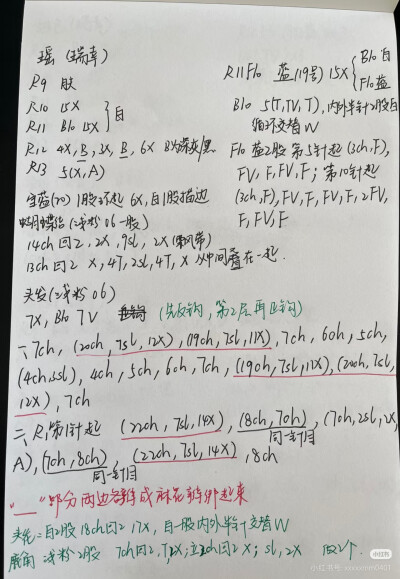 瑶（瑞幸）
R9 肤
R10 15X } 白
R11 Blo 15X
R12 4X, B, 3X, B, 6X
R13 5(X, A)
R11Flo 蓝(19号) 15X { Blo 白 Flo 蓝
Blo 5(T,TV,T), 内外半针2股白
循环交替W
Flo 蓝2股 第5针起 (3ch,F),
FV, F, FV, F; 第10针起
(3ch,F), FV, F, FV, F, 2FV,
F, FV, F
宝蓝(20) 1股环起 6X, 白1股描边
蝴蝶结 (浅粉06一股)
14ch回2, 2X, 9sl, 2X (飘带)
13ch回2 X, 4T, 2sl, 4T, X 从中间叠在一起.
头发(浅粉06)
7X, Blo 7V (先反钩, 第2层再正钩)
一、7ch, (20ch, 7sl, 12X), (19ch, 7sl, 11X), 7ch, 6ch, 5ch,
(4ch, 3sl), 4ch, 5ch, 6ch, 7ch, (19ch, 7sl, 11X), (20ch, 7sl,
12X), 7ch
二、R1第1针起 (22ch, 7sl, 14X), (8ch, 7ch), (7ch, 2sl, 2X,
同一针目
A), (7ch, 8ch), (22ch, 7sl, 14X), 8ch
同一针目
"__"部分两边各编成麻花辫绑起来
白2股 18ch回2 17X, 白一股内外半针交替W
鹿角 浅粉2股 7ch回2,
小红书